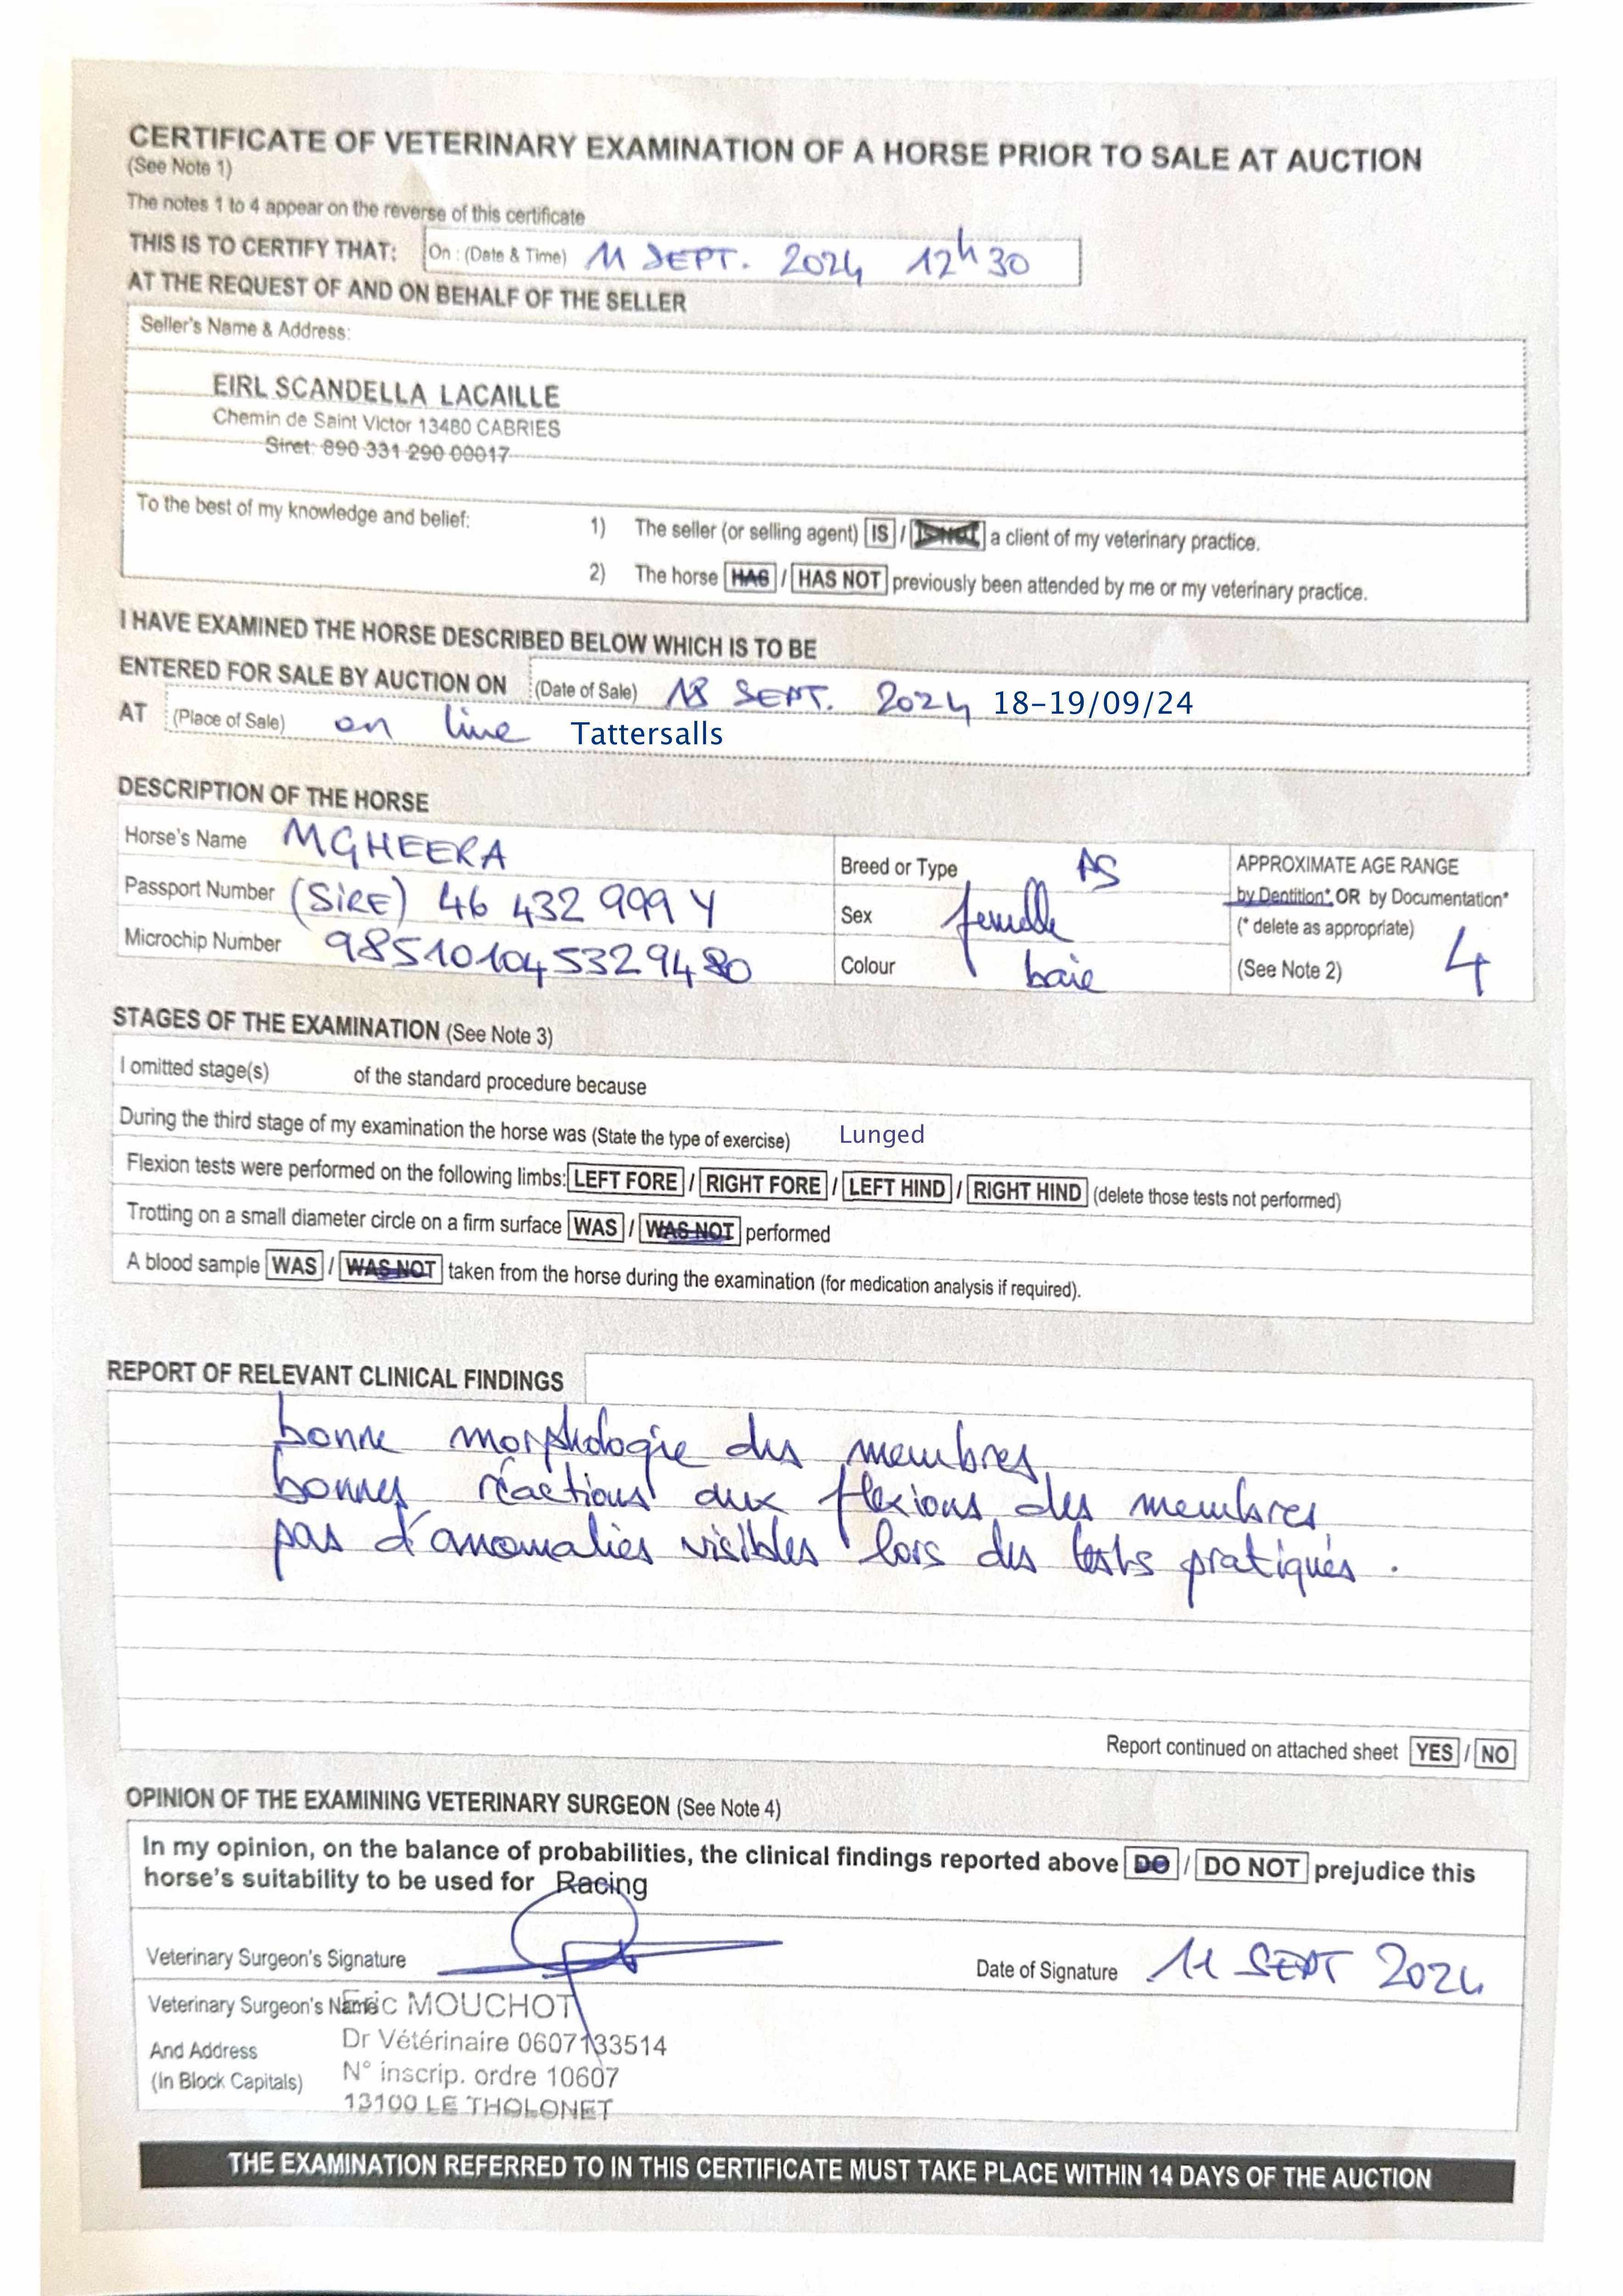 CERTIFICATE OF VETERINARY EXAMINATION OF A HORSE PRIOR TO SALE AT AUCTION
(See Note 1)
The notes 1 to 4 appear on the reverse of this certificate
THIS IS TO CERTIFY THAT: On : (Date & Time) 11 SEPT. 2024 12h30
AT THE REQUEST OF AND ON BEHALF OF THE SELLER
Seller's Name & Address:
EIRL SCANDELLA LACAILLE
Chemin de Saint Victor 13480 CABRIES
Siret: 890 331 290 00017
To the best of my knowledge and belief: 1) The seller (or selling agent) IS / IS NOT a client of my veterinary practice.
2) The horse HAS / HAS NOT previously been attended by me or my veterinary practice.
I HAVE EXAMINED THE HORSE DESCRIBED BELOW WHICH IS TO BE
ENTERED FOR SALE BY AUCTION ON (Date of Sale) 18 SEPT. 2024 18-19/09/24
AT (Place of Sale) on line Tattersalls
DESCRIPTION OF THE HORSE
Horse's Name MGHEERA
Passport Number (SIRE) 46 432 999 Y
Microchip Number 985101045329480
Breed or Type PS
Sex femelle
Colour baie
APPROXIMATE AGE RANGE
by Dentition* OR by Documentation*
(* delete as appropriate)
(See Note 2) 4
STAGES OF THE EXAMINATION (See Note 3)
I omitted stage(s) of the standard procedure because
During the third stage of my examination the horse was (State the type of exercise) Lunged
Flexion tests were performed on the following limbs: LEFT FORE / RIGHT FORE / LEFT HIND / RIGHT HIND (delete those tests not performed)
Trotting on a small diameter circle on a firm surface WAS / WAS NOT performed
A blood sample WAS / WAS NOT taken from the horse during the examination (for medication analysis if required).
REPORT OF RELEVANT CLINICAL FINDINGS
bonne morphologie des membres
bonnes réactions aux flexions des membres
pas d'anomalies visibles lors des tests pratiqués.
Report continued on attached sheet YES / NO
OPINION OF THE EXAMINING VETERINARY SURGEON (See Note 4)
In my opinion, on the balance of probabilities, the clinical findings reported above DO / DO NOT prejudice this
horse's suitability to be used for Racing
Veterinary Surgeon's Signature
Date of Signature 11 SEPT 2024
Veterinary Surgeon's Name Eric MOUCHOT
And Address Dr Vétérinaire 0607133514
(In Block Capitals) N° inscrip. ordre 10607
13100 LE THOLONET
THE EXAMINATION REFERRED TO IN THIS CERTIFICATE MUST TAKE PLACE WITHIN 14 DAYS OF THE AUCTION